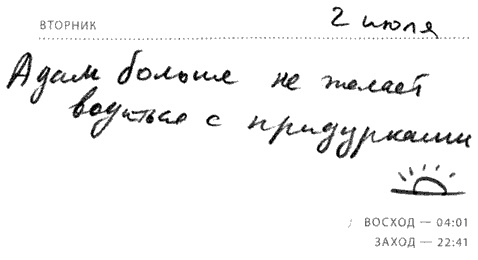 ВТОРНИК
2 июля
Адам больше не желает
водиться с придурками
ВОСХОД — 04:01
ЗАХОД — 22:41